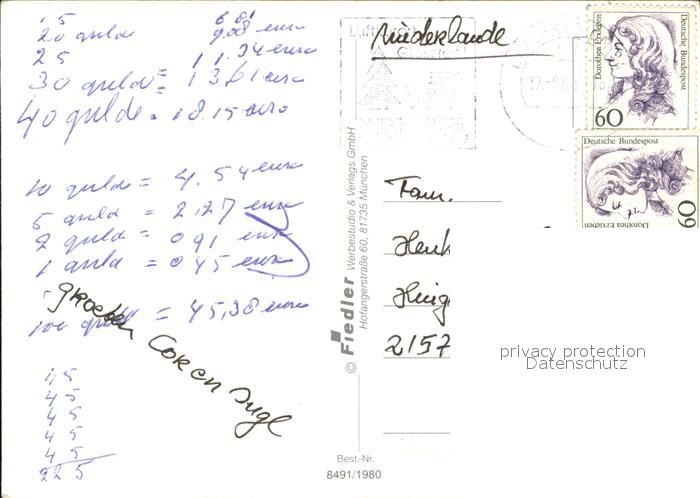 15 6 81
20 gulde 9.08 euro
25 11.34 euro
30 gulde = 13,61 euro
40 gulde = 18.15 euro
10 gulde = 4.54 euro
5 guld = 2,27 euro
2 gulde = 091 euro
1 guld = 045 euro
100 = 45,38 euro
groeten Cor en
45
45
45
45
225
© Fiedler Werbestudio & Verlags GmbH
Hofangerstraße 60, 81735 München
Best.-Nr.
8491/1980
Niederlande
Luft
Deutsche Bundespost
Dorothea Erxleben
60
Deutsche Bundespost
Dorothea Erxleben
60
Fam.
Henk
2157
privacy protection
Datenschutz